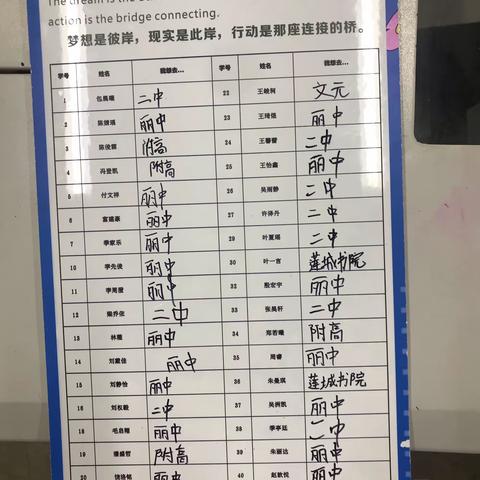 action is the bridge connecting.
梦想是彼岸，现实是此岸，行动是那座连接的桥。
学号 姓名 我想去... 学号 姓名 我想去...
1 二中 22 文元
2 丽中 23 丽中
3 附高 24 二中
4 附高 25 王怡鑫 丽中
5 付文祥 丽中 26 吴雨静 二中
6 丽中 27 许泽丹 二中
7 季家乐 丽中 29 叶夏瑶 二中
10 李先俊 丽中 30 叶一言 莲城书院
11 李周澄 丽中 32 殷宏宇 丽中
12 梁乔依 二中 33 张昊轩 二中
13 林薇 丽中 34 郑若曦 附高
14 刘戴佳 丽中 35 周睿 丽中
15 刘静怡 丽中 36 朱曼琪 莲城书院
16 刘权毅 二中 37 吴洲凯 丽中
18 毛启翔 丽中 38 季亭廷 二中
19 潘盛哲 附高 39 朱丽达 丽中
20 饶洛铭 丽中 40 赵歆悦 丽中